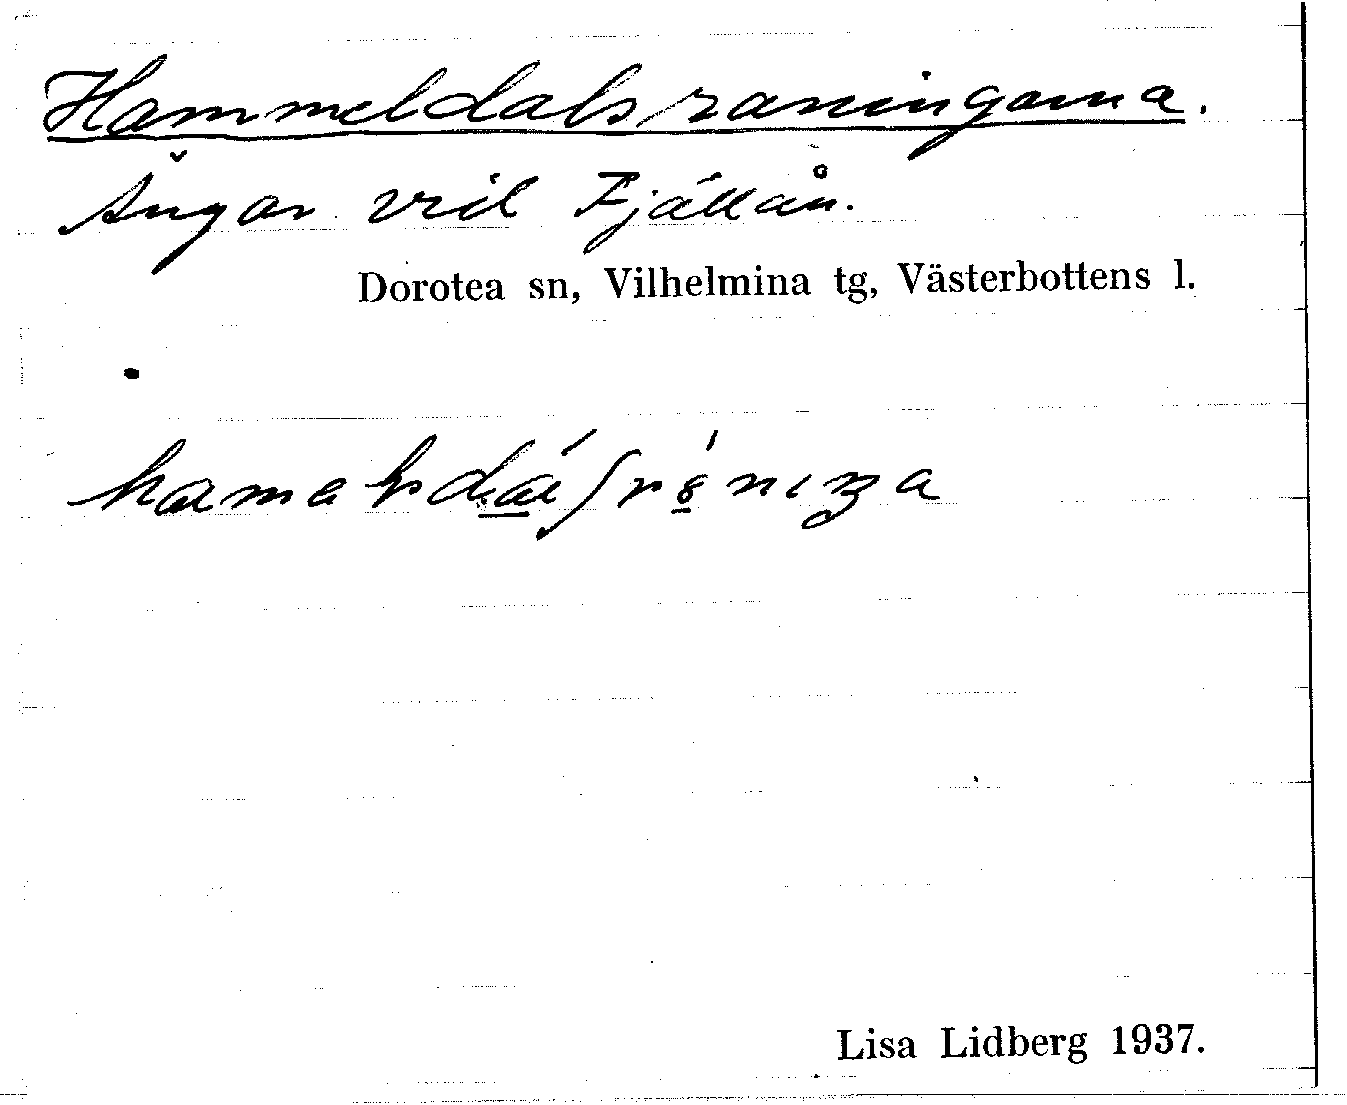 Hammeldalsraningarna.
Ängar vid Fjällån.
Dorotea sn, Vilhelmina tg, Västerbottens l.
Lisa Lidberg 1937.